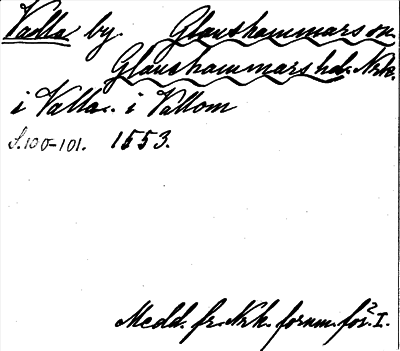 Valla by. Glanshammars sn.
Glanshammars hd. Nrk.
i Valla.. i Vallom
S. 100-101. 1553.
Medd. fr. Nrk. fornm. för. 2 I.